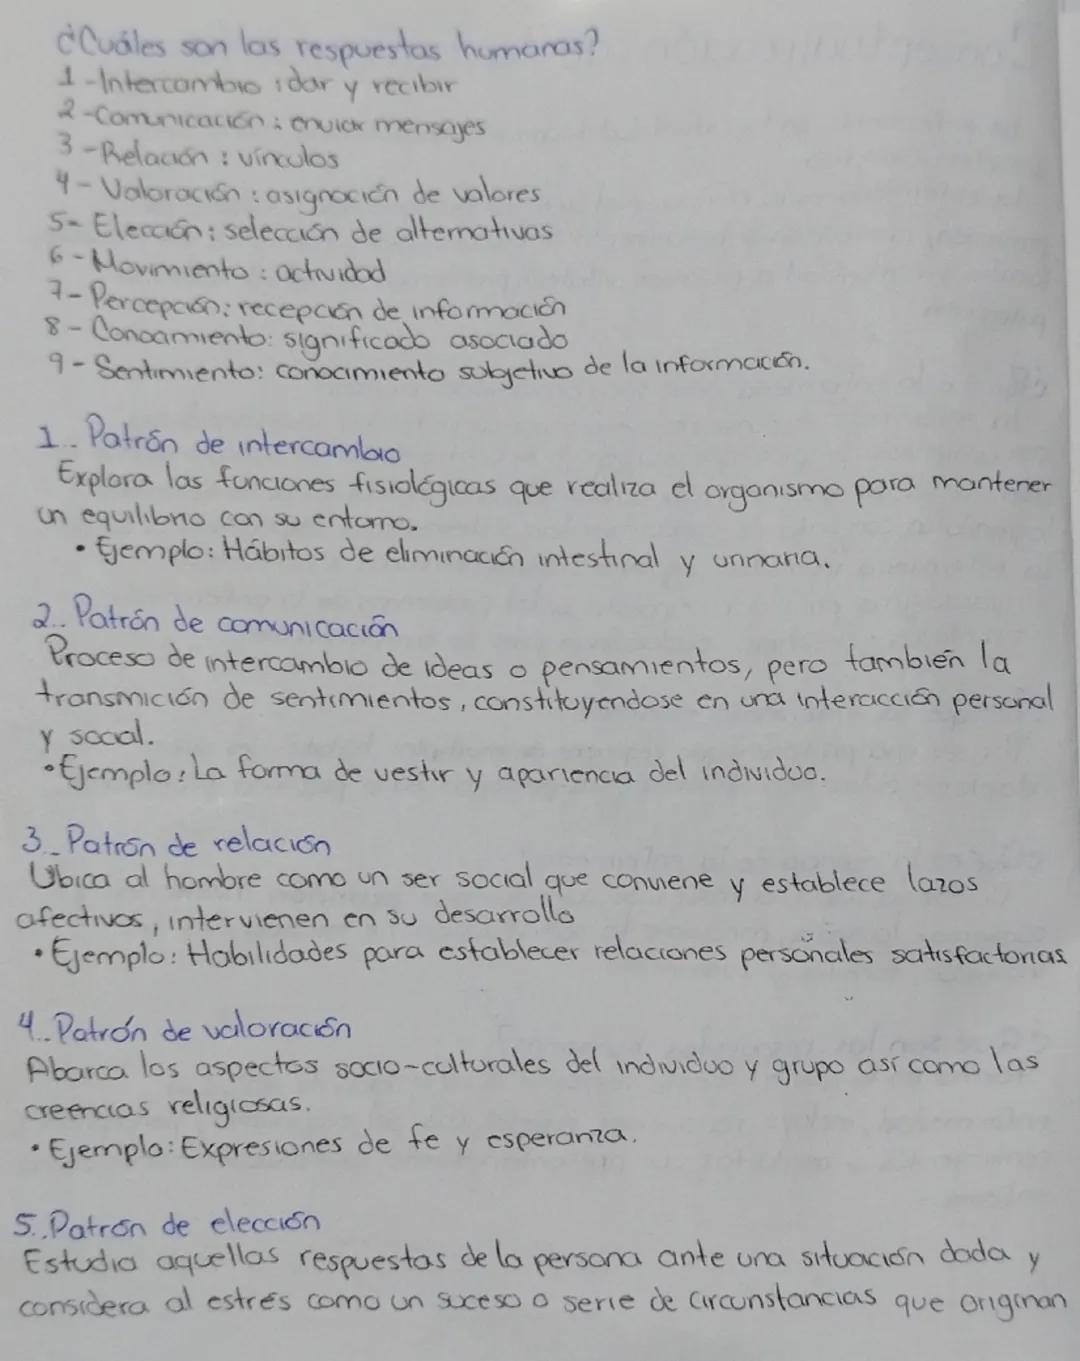 ¿Cuáles son las respuestas humanas?
1-Intercambio: dar y recibir
2-Comunicación: enviar mensajes
3-Relación: vínculos
4-Valoración: asignación de valores
5-Elección: selección de alternativas
6-Movimiento: actividad
7-Percepción: recepción de información
8-Conocimiento: significado asociado
9-Sentimiento: conocimiento subjetivo de la información.
1.. Patrón de intercambio
Explora las funciones fisiológicas que realiza el organismo para mantener
un equilibrio con su entorno.
• Ejemplo: Hábitos de eliminación intestinal y urinaria.
2.. Patrón de comunicación
Proceso de intercambio de ideas o pensamientos, pero también la
transmición de sentimientos, constituyendose en una interacción personal
y social.
• Ejemplo: La forma de vestir y apariencia del individuo.
3.. Patrón de relación
Ubica al hombre como un ser social que conviene y establece lazos
afectivos, intervienen en su desarrollo
• Ejemplo: Habilidades para establecer relaciones personales satisfactorias
4.. Patrón de valoración
Abarca los aspectos socio-culturales del individuo y grupo así como las
creencias religiosas.
• Ejemplo: Expresiones de fe y esperanza.
5.. Patrón de elección
Estudia aquellas respuestas de la persona ante una situación dada y
considera al estrés como un suceso o serie de circunstancias que originan